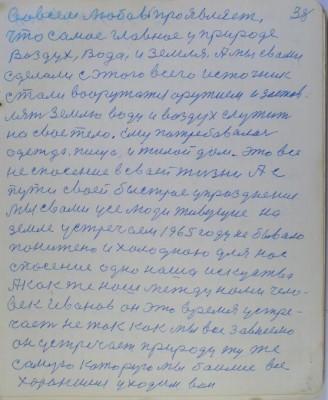 Со всем любовь проявляет, 38
что самое главное у природе
воздух, вода, и земля. А мы с вами
сделали с этого всего источник
стали вооружать оружием и застав-
лять землю воду и воздух служить
на свое тело. Ему потребовалась
одежда, пища, и жилой дом. Это все
не спасение в своей жизни А с
пути своей быстрое упразднения
Мы с вами усе люди живущие на
земле устречаем 1965 году не бывало
пониженно и холодною для нас
спасение одно наша искуство
А как же наш между нами чело-
век Иванов он это время устре-
чает не так как мы все зависемо
он устречает природу ту же
самую которую мы боимся все
хоронимся уходим вон